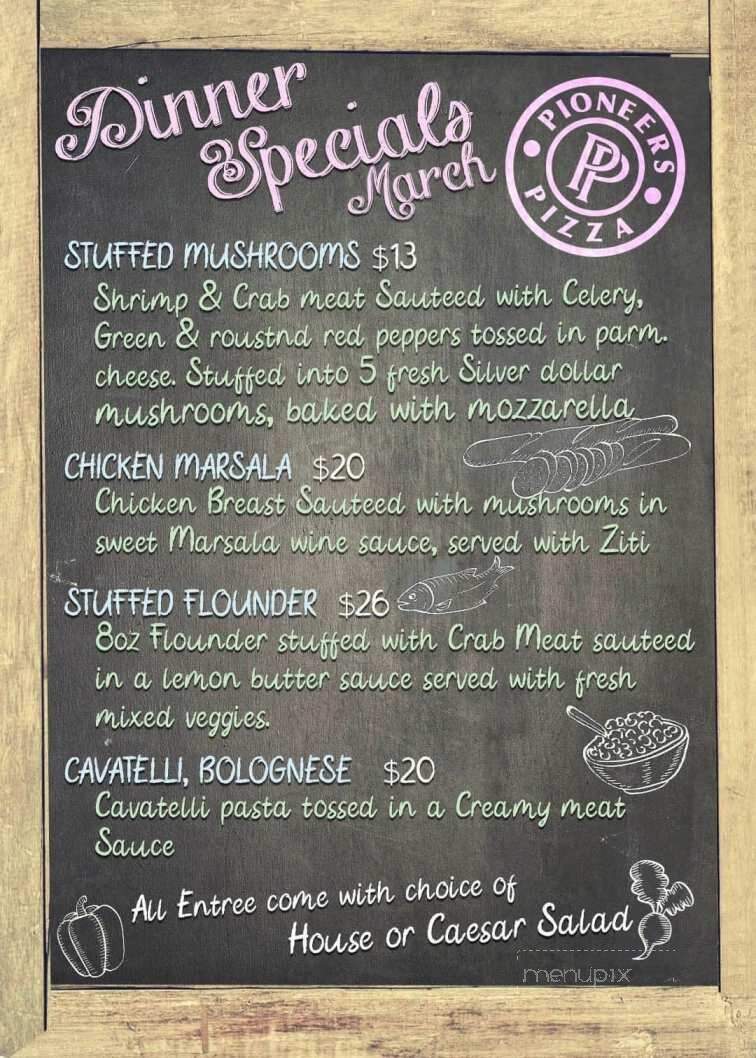 Dinner
Specials
March
PIONEERS
PP
PIZZA
STUFFED MUSHROOMS $13
Shrimp & Crab meat Sauteed with Celery,
Green & roustnd red peppers tossed in parm.
cheese. Stuffed into 5 fresh Silver dollar
mushrooms, baked with mozzarella
CHICKEN MARSALA $20
Chicken Breast Sauteed with mushrooms in
sweet Marsala wine sauce, served with Ziti
STUFFED FLOUNDER $26
8oz Flounder stuffed with Crab Meat sauteed
in a lemon butter sauce served with fresh
mixed veggies.
CAVATELLI, BOLOGNESE $20
Cavatelli pasta tossed in a Creamy meat
Sauce
All Entree come with choice of
House or Caesar Salad
menupix